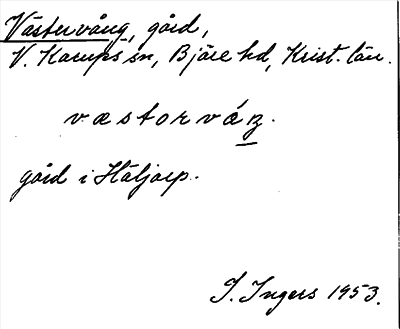 Västervång, gård,
V. Karups sn, Bjäre hd, Krist. län.
væstorváŋ.
gård i Häljarp.
I. Ingers 1953.